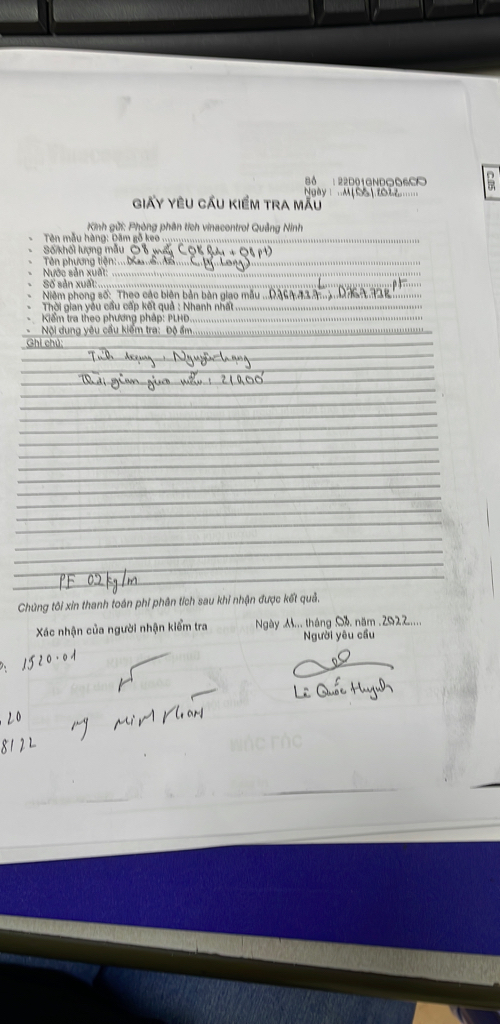 Số : 22D01GND00600
Ngày : 11/08/2022
C.05
GIẤY YÊU CẦU KIỂM TRA MẪU
Kính gửi: Phòng phân tích vinacontrol Quảng Ninh
- Tên mẫu hàng: Dăm gỗ keo
- Số/khối lượng mẫu 08 mẫu (04 lưu + 04 pt)
- Tên phương tiện: (Hạ Long)
- Nước sản xuất:
- Số sản xuất:
- Niêm phong số: Theo các biên bản bàn giao mẫu
- Thời gian yêu cầu cấp kết quả : Nhanh nhất
- Kiểm tra theo phương pháp: PLHĐ
- Nội dung yêu cầu kiểm tra: Độ ẩm
Ghi chú:
Tình trạng : Nguyên trạng
Thời gian giao mẫu : 21h00'
PE 02kg/m
Chúng tôi xin thanh toán phí phân tích sau khi nhận được kết quả.
Xác nhận của người nhận kiểm tra
Ngày 11 tháng 08 năm 2022
Người yêu cầu
1520.01
Lê Quốc Huynh
20
8/22